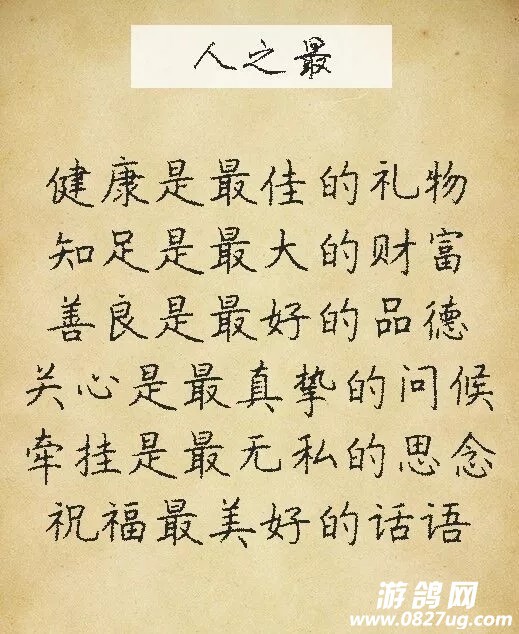 人之最
健康是最佳的礼物
知足是最大的财富
善良是最好的品德
关心是最真挚的问候
牵挂是最无私的思念
祝福最美好的话语
游鸽网
www.0827ug.com